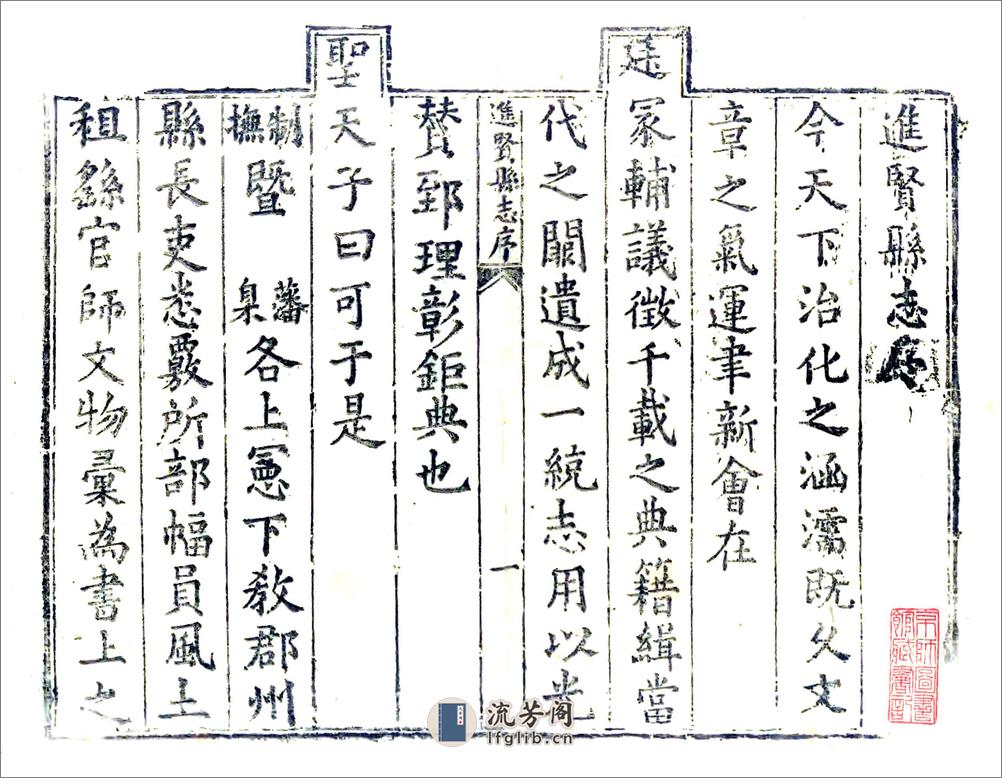 進賢縣志序
今天下治化之涵濡既久文
章之氣運聿新會在
廷冢輔議徵千載之典籍緝當
代之闕遺成一統志用以光
進賢縣志序 一
贊郅理彰鉅典也
聖天子曰可于是
制撫暨 藩臬各上憲下教郡州
縣長吏悉覈所部幅員風土
租繇官師文物彙為書上之
京師圖書
館藏書記
流芳阁
lfglib.cn